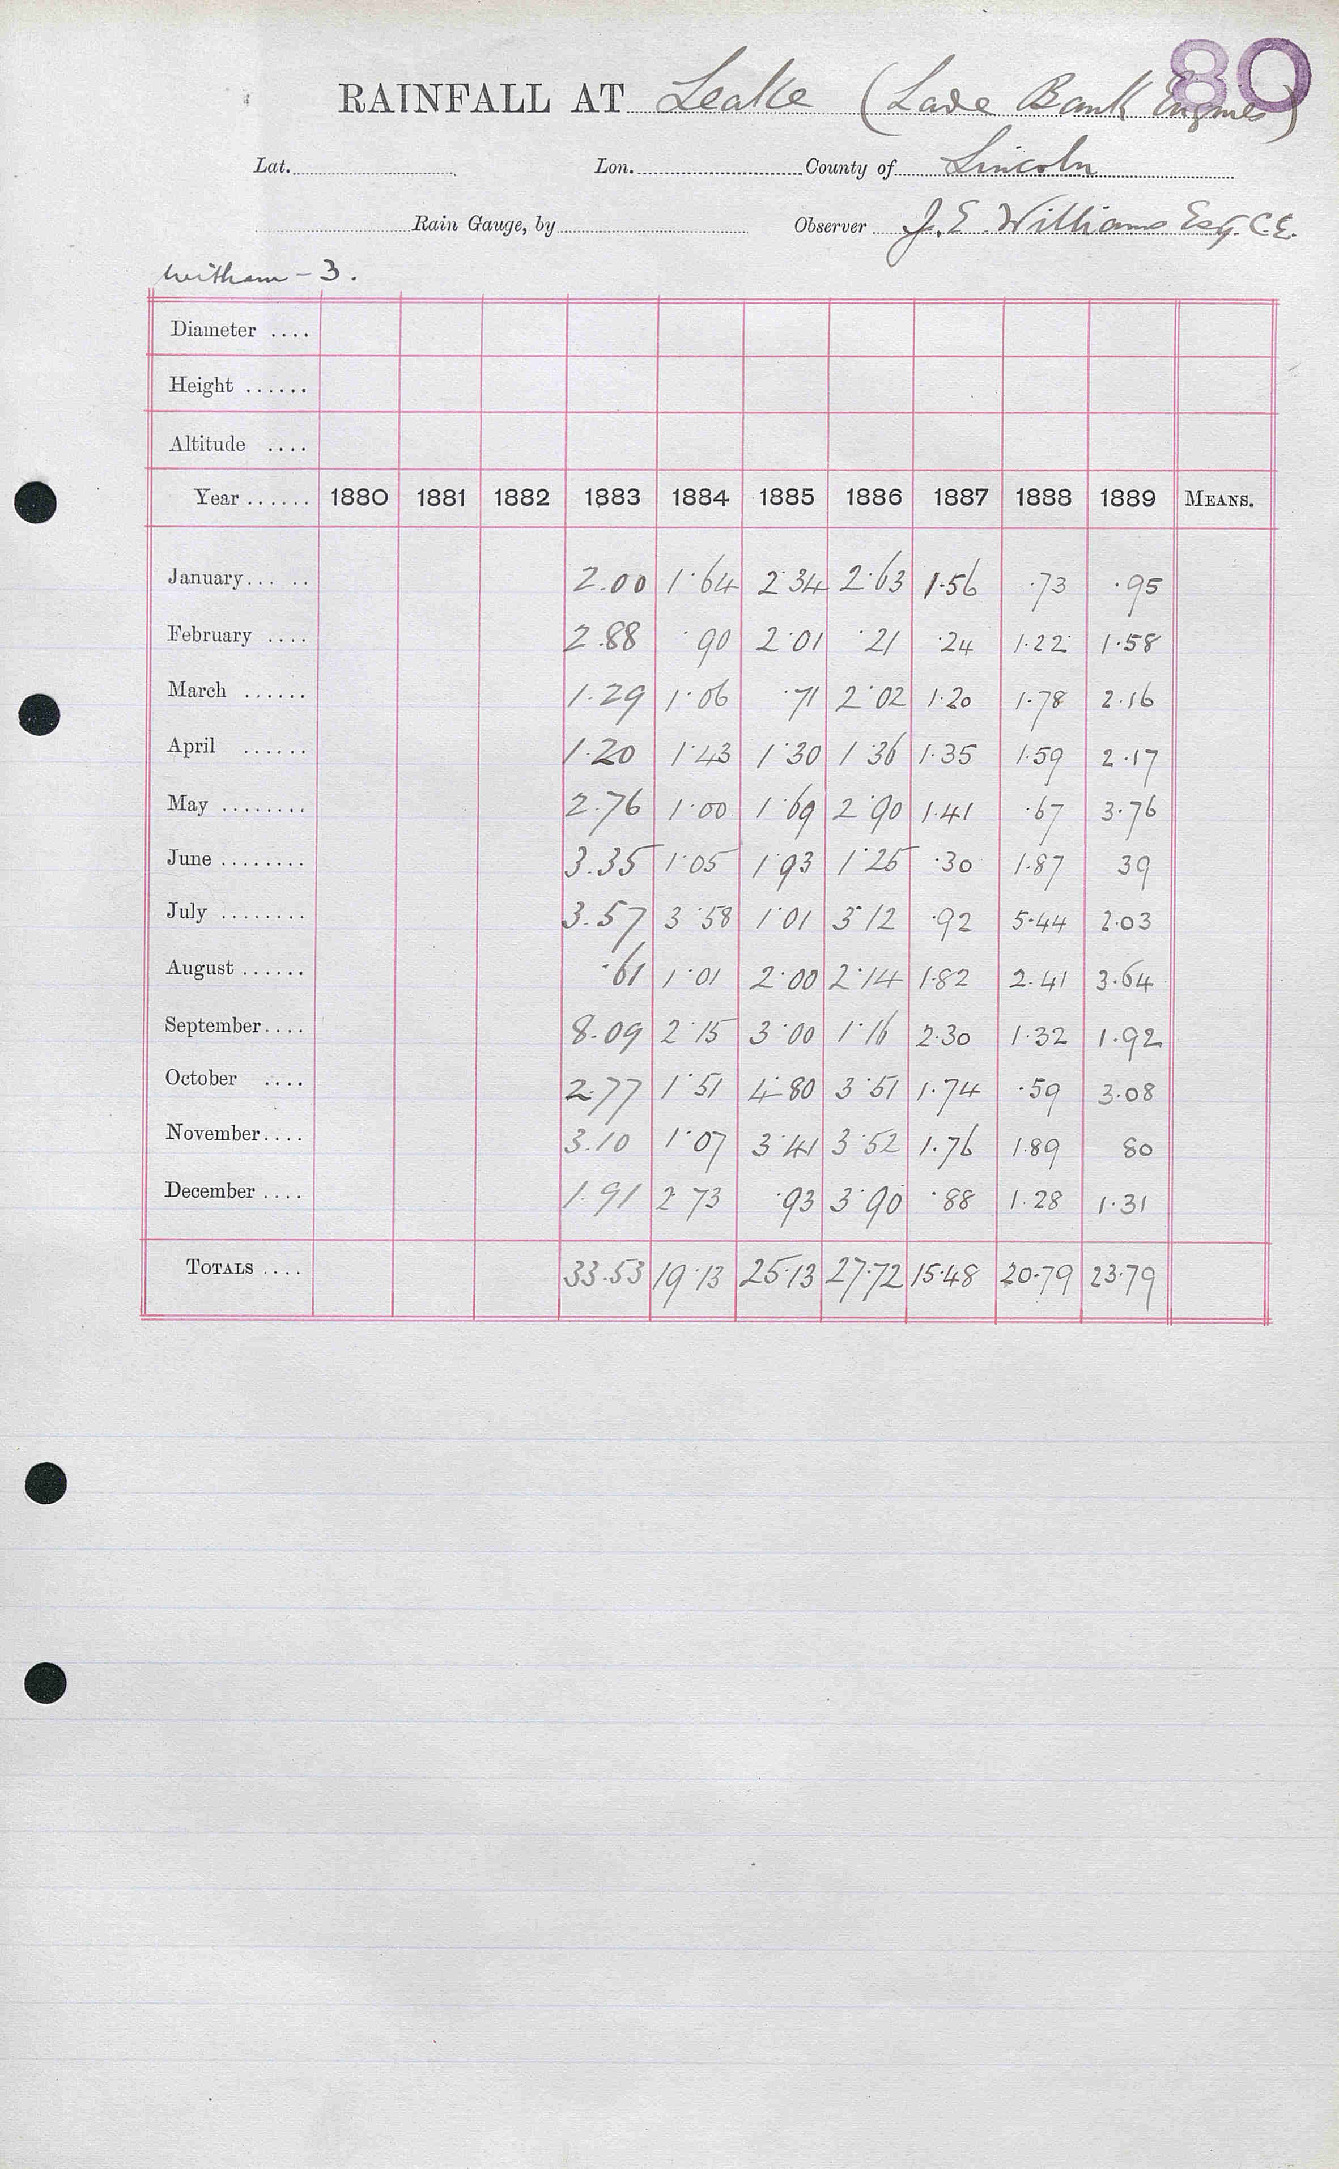 80
RAINFALL AT Leake (Lade Bank Engines)
Lat. Lon. County of Lincoln
Rain Gauge, by Observer J. E. Williams Esq. C.E.
Witham - 3.
Diameter ....
Height ......
Altitude ....
Year ...... 1880 1881 1882 1883 1884 1885 1886 1887 1888 1889 MEANS.
January... .. 2.00 1.64 2.34 2.63 1.56 .73 .95
February .... 2.88 .90 2.01 .21 .24 1.22 1.58
March ...... 1.29 1.06 .71 2.02 1.20 1.78 2.16
April ...... 1.20 1.43 1.30 1.36 1.35 1.59 2.17
May ........ 2.76 1.00 1.69 2.90 1.41 .67 3.76
June ........ 3.35 1.05 1.93 1.25 .30 1.87 39
July ........ 3.57 3.58 1.01 3.12 .92 5.44 2.03
August ...... .61 1.01 2.00 2.14 1.82 2.41 3.64
September.... 8.09 2.15 3.00 1.16 2.30 1.32 1.92
October .... 2.77 1.51 4.80 3.51 1.74 .59 3.08
November.... 3.10 1.07 3.41 3.52 1.76 1.89 80
December .... 1.91 2.73 .93 3.90 .88 1.28 1.31
TOTALS .... 33.53 19.13 25.13 27.72 15.48 20.79 23.79